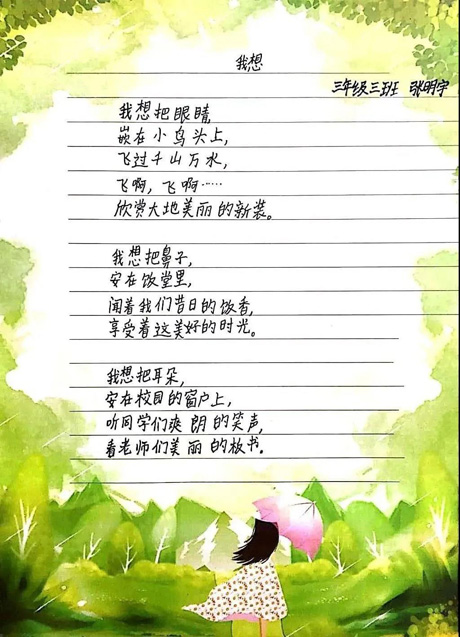 我想
三年级三班 张明宇
我想把眼睛,
嵌在小鸟头上,
飞过千山万水,
飞啊,飞啊……
欣赏大地美丽的新装。
我想把鼻子,
安在饭堂里,
闻着我们昔日的饭香,
享受着这美好的时光。
我想把耳朵,
安在校园的窗户上,
听同学们爽朗的笑声,
看老师们美丽的板书。